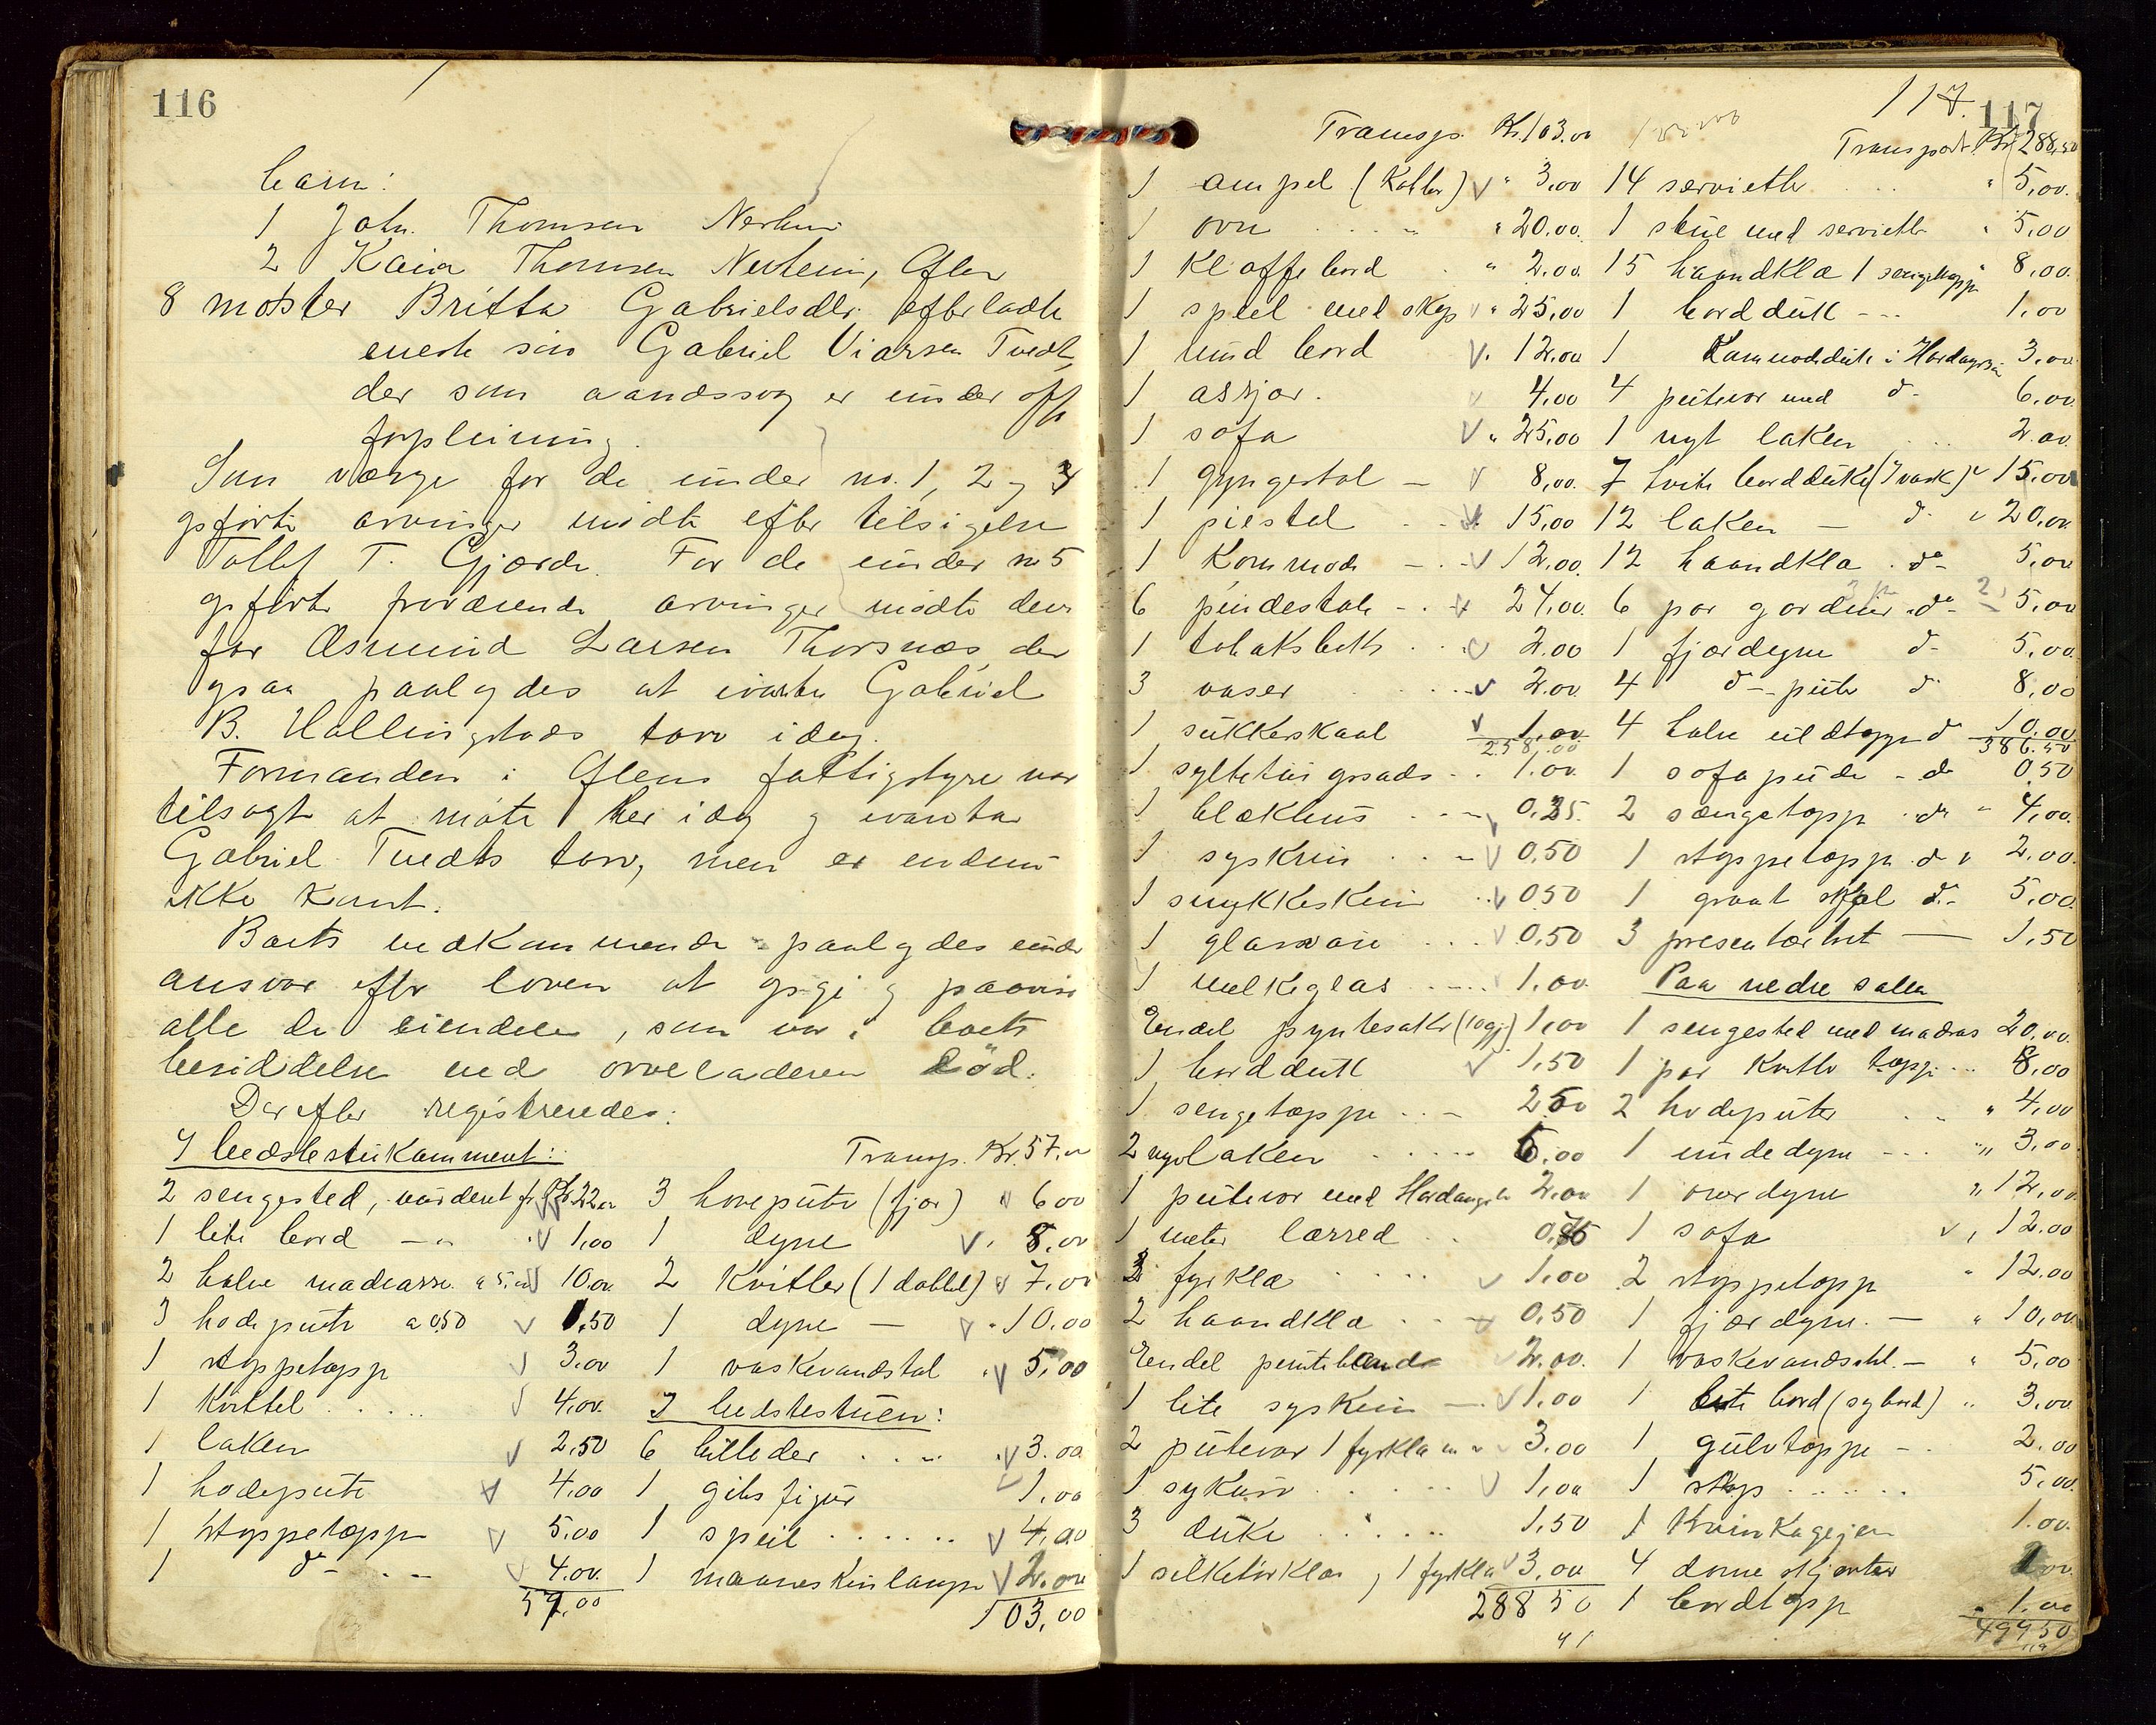 116
barn:
1 John Thomsen Nerheim
2 Kaia Thomsen Nerheim, Ølen
8 moster Britta Gabrielsdtr. efterladte
eneste søn Gabriel Tvedt,
der som aandssvag er under off
forpleining.
Som værge for de under no. 1, 2 og 3
opførte arvinger mødte efter tilsigelse
Tollef T. Gjærde. For de under no 5
opførte fraværende arvinger mødte den
for Asmund Larsen Thorsnæs, der
ogsaa paalagdes at ivareta Gabriel
B. Hallingstads tarv idag.
Formanden i Ølens fattigstyre var
tilsagt at møte her idag og ivareta
Gabriel Tvedts tarv, men er endnu
ikke kommet.
Boets vedkommende paalagdes under
ansvar efter loven at opgi og paavise
alle de eiendeler, som var i boets
besiddelse ved arveladeren död.
Derefter registreredes:
I bedstestukammeret:
2 sengested, vurdert for Kr 22.00
1 lite bord 1,00
2 halve madrasse a 5.00 10.00
3 hodepute a 0,50 1.50
1 stoppetæpp 3.00
1 kvittel 4.00
1 laken 2,50
1 hodepute 4.00
1 stoppetæppe 5.00
1 do 4.00
57.00
Transp. Kr. 57.00
3 hovepute (fjær) 6 00
1 dyne 8.00
2 kvitler (1 dobbel) 7.00
1 dyne 10.00
1 vaskevandstol 5.00
I bedstestuen:
6 billeder 3.00
1 gibsfigur 1,00
1 speil 4,00
1 maaneskinlampe 2.00
103,00
117
Transp. Kr. 103.00
1 ampel (Kobber) 3,00
1 ovn 20.00
1 klaffebord 2,00
1 speil med skap 25,00
1 rundbord 12.00
1 assjor. 4.00
1 sofa 25,00
1 gyngestol 8,00
1 piestel 15,00
1 Kommode 12.00
6 pindestole 24,00
1 tobaksboks 2.00
3 vaser 2.00
1 sukkerskaal 1.00
258,00
1 syltetøigsads 1.00
1 blækhus 0,25
1 syskrin 0,50
1 smykkeskrin 0.50
1 glasvase 0,50
1 melkeglas 1.00
Endel pyntesaker (10 gj.) 1,00
1 borddukk 1,50
1 sengetæppe 2.50
2 nye laken 5.00
1 putevar med Hardanger 2.00
1 meter lærred
2 fyrklæ 1,00
2 haandklæ 0,50
Endel 2.00
1 lite syskrin 1.00
2 putevar 1 fyrklæ 3.00
1 sykurv 1,00
3 duke 1.50
1 silketørklæ, 1 fyrklæ 3,00
288 50
117
Transport Kr. 288,50
14 servietter 5,00
1 stue med servietter 5,00
15 haandklæ 1 sengetæpp 8,00
1 borddukk 1,00
1 Kammodeduk i Hardangersøm 3.00
4 putevar med do 6.00
1 nyt laken 2.00
7 hvite borddukke (I vask) 15,00
12 laken do 20,00
12 haandklæ do 5,00
6 par gardiner do 5,00
1 fjærdyne do 5,00
4 do pute do 8,00
4 halve uldtæpper do 10.00
386.50
1 sofapude do 0,50
2 sængetæpp do 4,00
1 stoppetæpp do 2.00
1 graat sjal do 5,00
3 presenterbret 1,50
Paa nedre salen
1 sengested med madras 20,00
1 par kvitle tæpp 8,00
2 hodeputer 4,00
1 undedyne 3,00
1 overdyne 12,00
1 sofa 12.00
2 stoppetæpp 12.00
1 fjærdyne 10,00
1 vaskevandsstol 5.00
1 lite bord (sybord) 3,00
1 gulvtæppe 2.00
1 skap 5,00
1 1.00
4 dame skjorter
1 bordtæpp 1.00
499 50